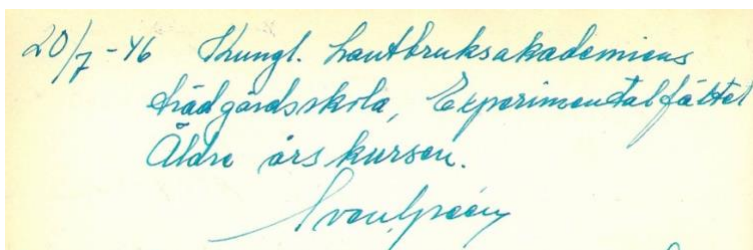 20/7 -46 Kungl. Lantbruksakademiens
trädgårdsskola, Experimentalfältet
Äldre årskursen.